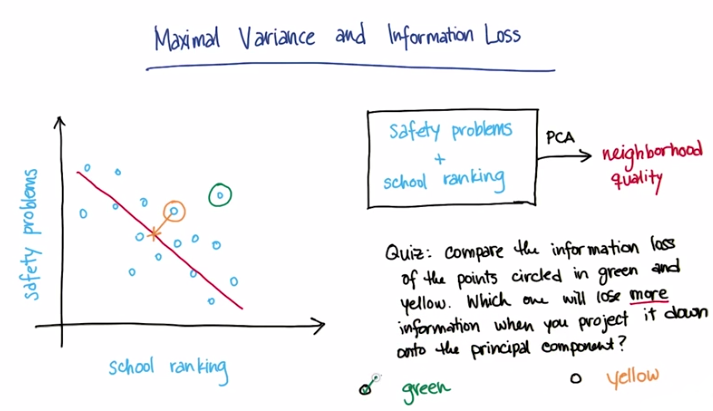 Maximal Variance and Information Loss
safety problems
school ranking
safety problems
+
school ranking
PCA
neighborhood
quality
Quiz: compare the information loss
of the points circled in green and
yellow. Which one will lose more
information when you project it down
onto the principal component?
green
yellow